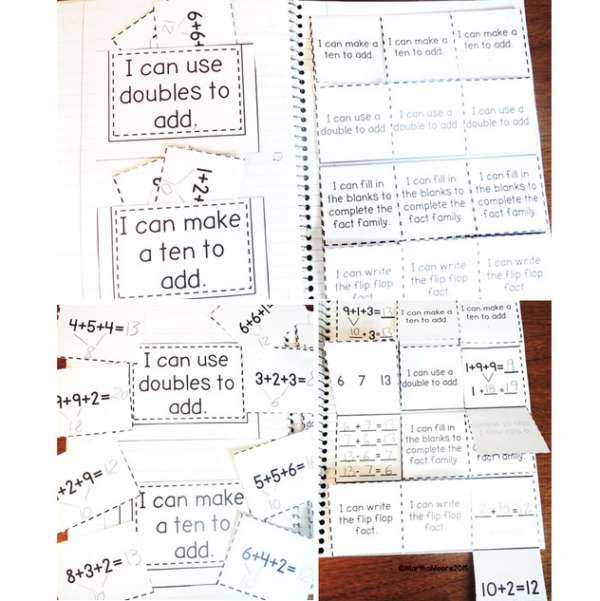 6+6+
I can use
doubles to
add.
1+2+
I can make
a ten to
add.
I can make a
ten to add.
I can make a
ten to add.
I can make a
ten to add.
I can use a
double to add.
I can use a
double to add.
I can use a
double to add.
I can fill in
the blanks to
complete the
fact family.
I can fill in
the blanks to
complete the
fact family.
I can fill in
the blanks to
complete the
fact family.
I can write
the flip flop
fact.
I can write
the flip flop
fact.
I can write
the flip flop
fact.
4+5+4=13
8
6+6+1
12
I can use
doubles to
add.
9+9+2=20
18
3+2+3=
+2+9=12
10
5+5+6=
10
I can make
a ten to
add.
8+3+2=13
6+4+2=
10
9+1+3=13
10+3=13
I can make a
ten to add.
I can make a
ten to add.
6 7 13
I can use a
double to add.
1+9+9=
1+18=19
6+7=13
7+6=13
13-6=7
13-7=6
I can fill in
the blanks to
complete the
fact family.
fact family.
I can write
the flip flop
fact.
I can write
the flip flop
fact.
2+10=12
©MarthaMoore2015
10+2=12